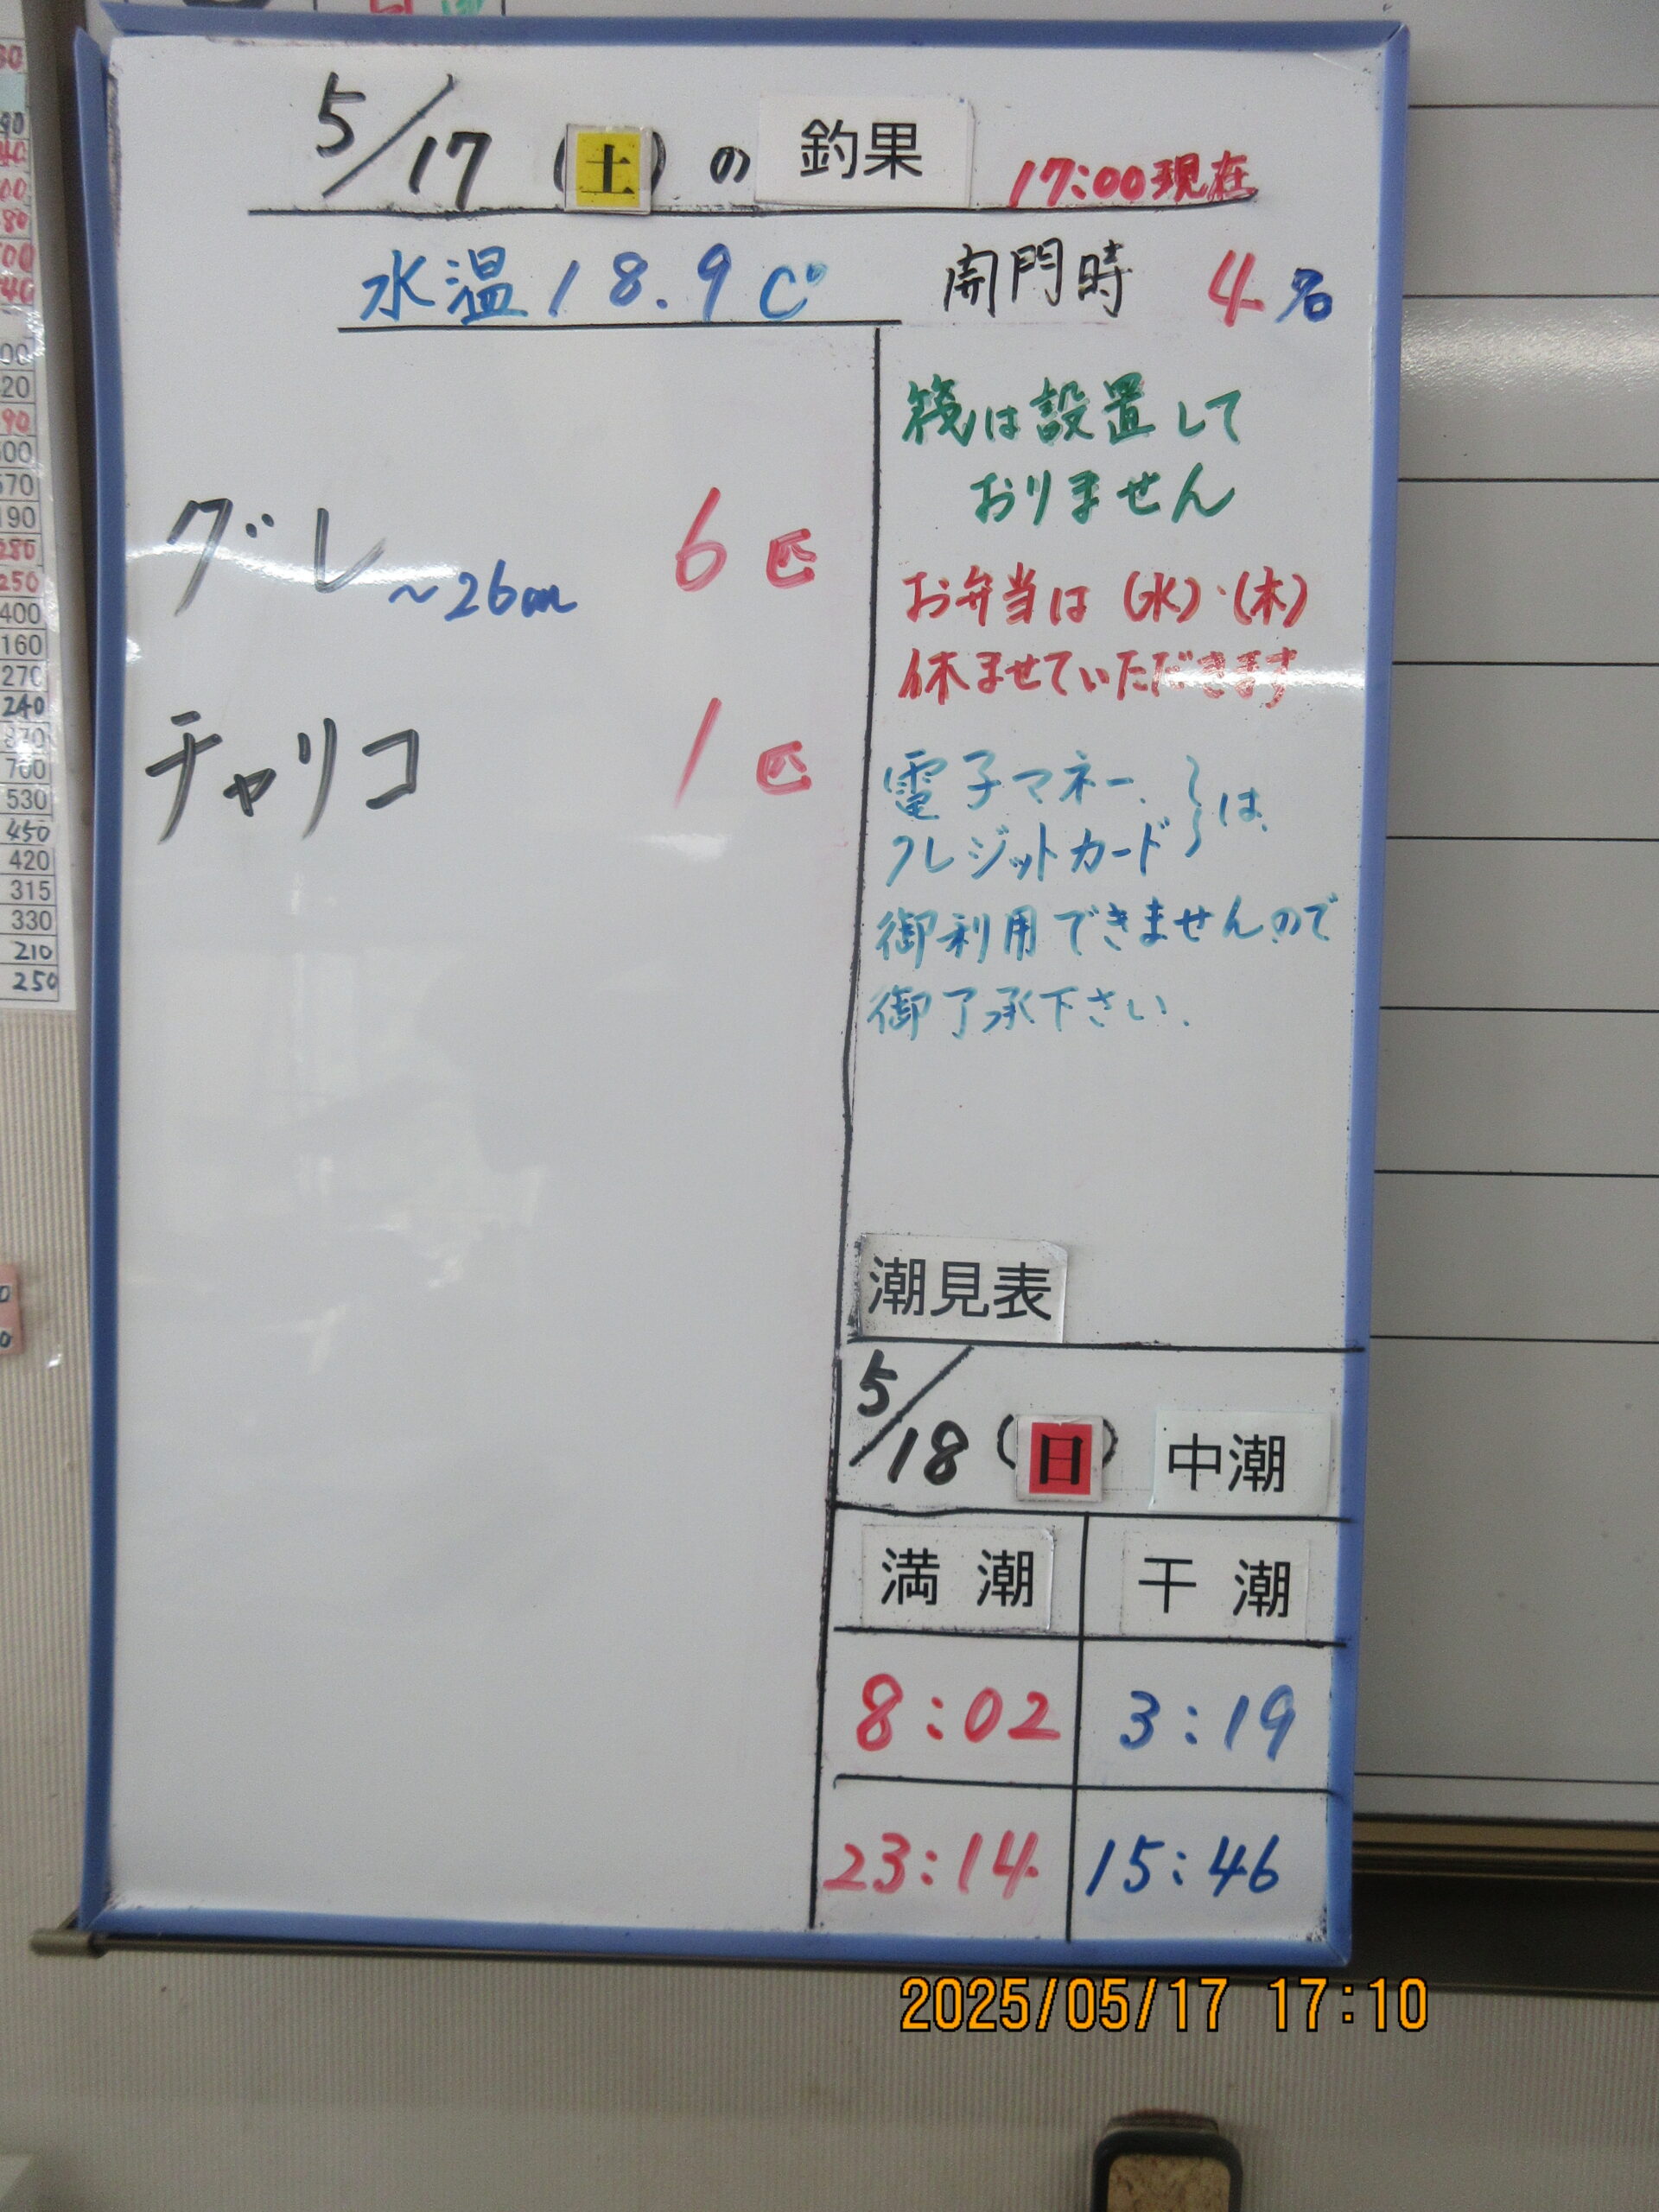 5/17 (土) の 釣果 17:00現在
水温 18.9 C° 開門時 4名
グレ ~26cm 6匹
チャリコ 1匹
筏は設置して
おりません
お弁当は(水)・(木)
休ませていただきます
電子マネー、
クレジットカード } は
御利用できませんので
御了承下さい.
潮見表
5/18 (日) 中潮
満潮 干潮
8:02 3:19
23:14 15:46
2025/05/17 17:10
400
160
270
240
870
700
530
450
420
315
330
210
250